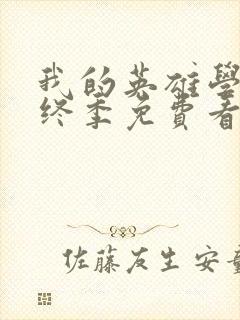 我的英雄學
终季免費看
佐藤友生安